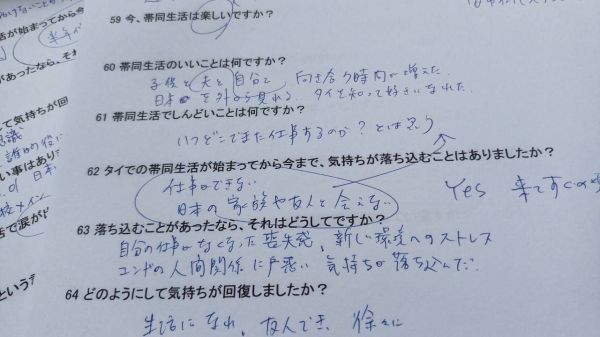 59 今、帯同生活は楽しいですか？
60 帯同生活のいいことは何ですか？
子供と夫と自分と 向き合う時間が増えた.
日本を外から見れる、タイを知って好きになれた.
61 帯同生活でしんどいことは何ですか？
いつどこでまた仕事するのか？とは思う
62 タイでの帯同生活が始まってから今まで、気持ちが落ち込むことはありましたか？
仕事ができない
日本の家族や友人と会えない
Yes 来てすぐの
63 落ち込むことがあったなら、それはどうしてですか？
自分の仕事がなくなった喪失感、新しい環境へのストレス
コンドの人間関係に戸惑い 気持ちが落ち込んだ.
64 どのようにして気持ちが回復しましたか？
生活になれ、友人でき、徐々に